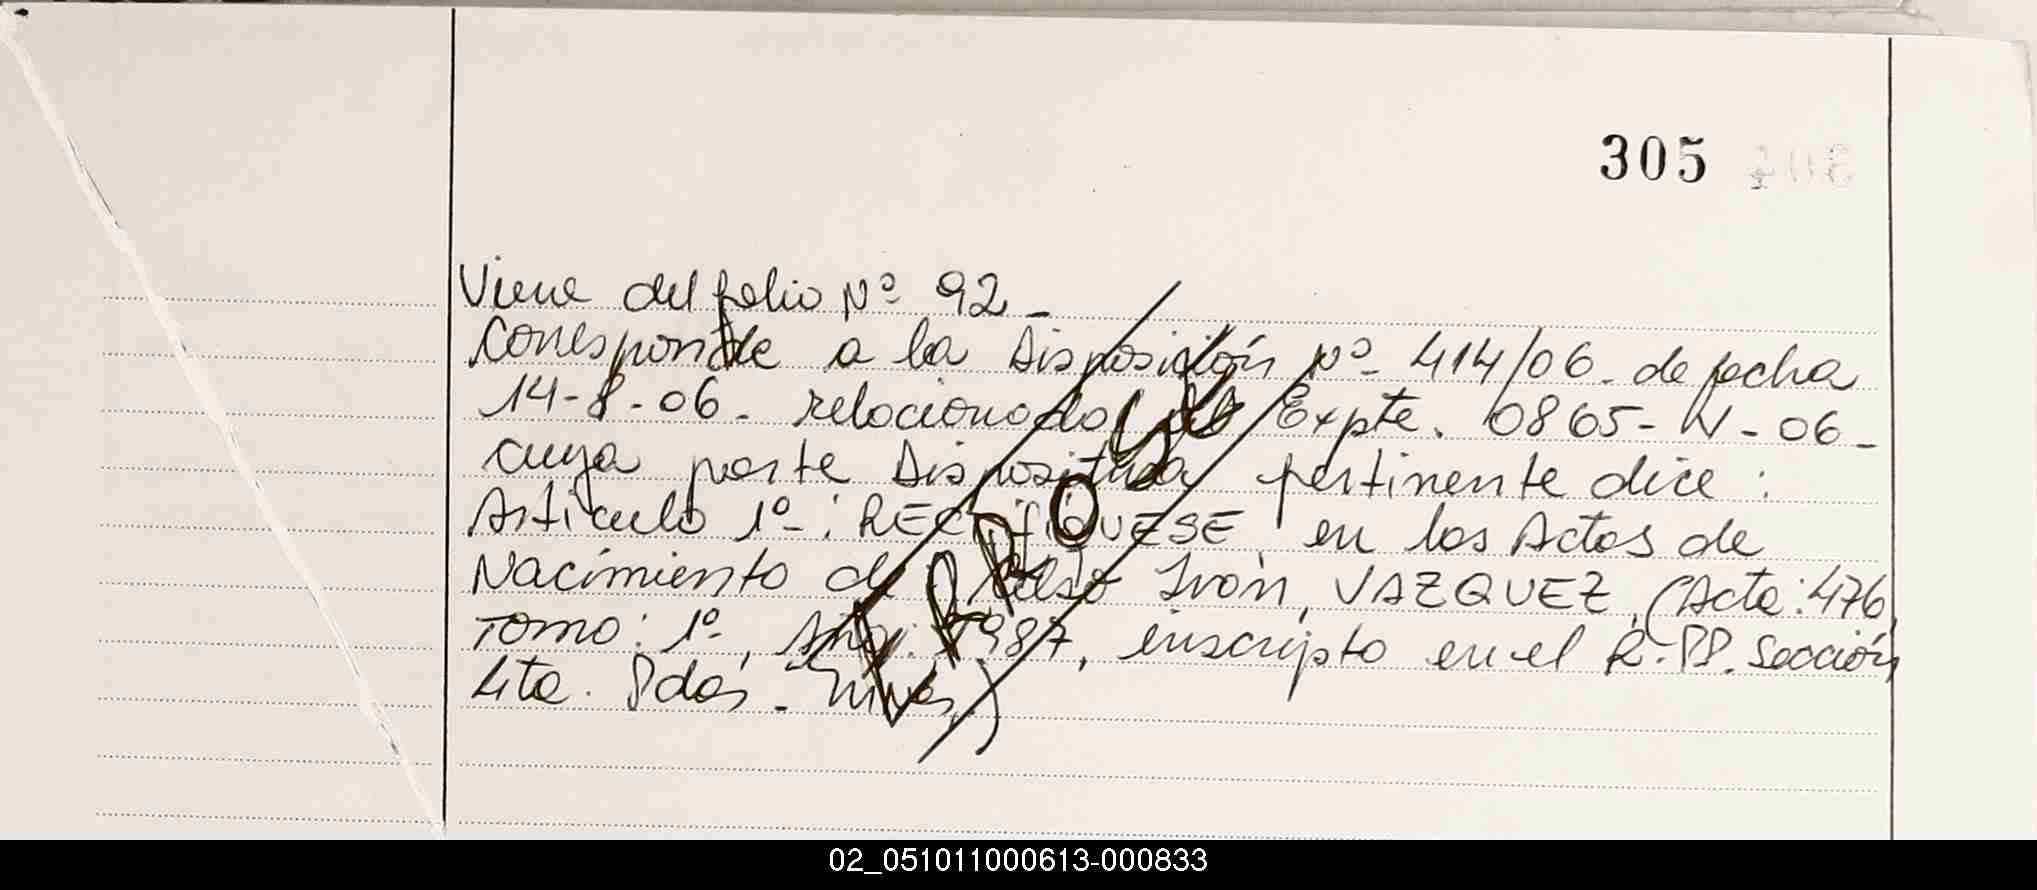 305
Viene del folio Nº 92 -
Corresponde a la Disposición Nº 414/06. de fecha
14-8-06. relacionado Expte. 0865-N-06-
cuya parte Dispositiva pertinente dice :
Artículo 1º-: RECTIFIQUESE, en las Actas de
Nacimiento de Celso Iván, VAZQUEZ, (Acta: 476
Tomo: 1º, Año: 1987, inscripto en el R.PP. Sección
4ta. Pdas - Mnes)
ERROSE
02_051011000613-000833